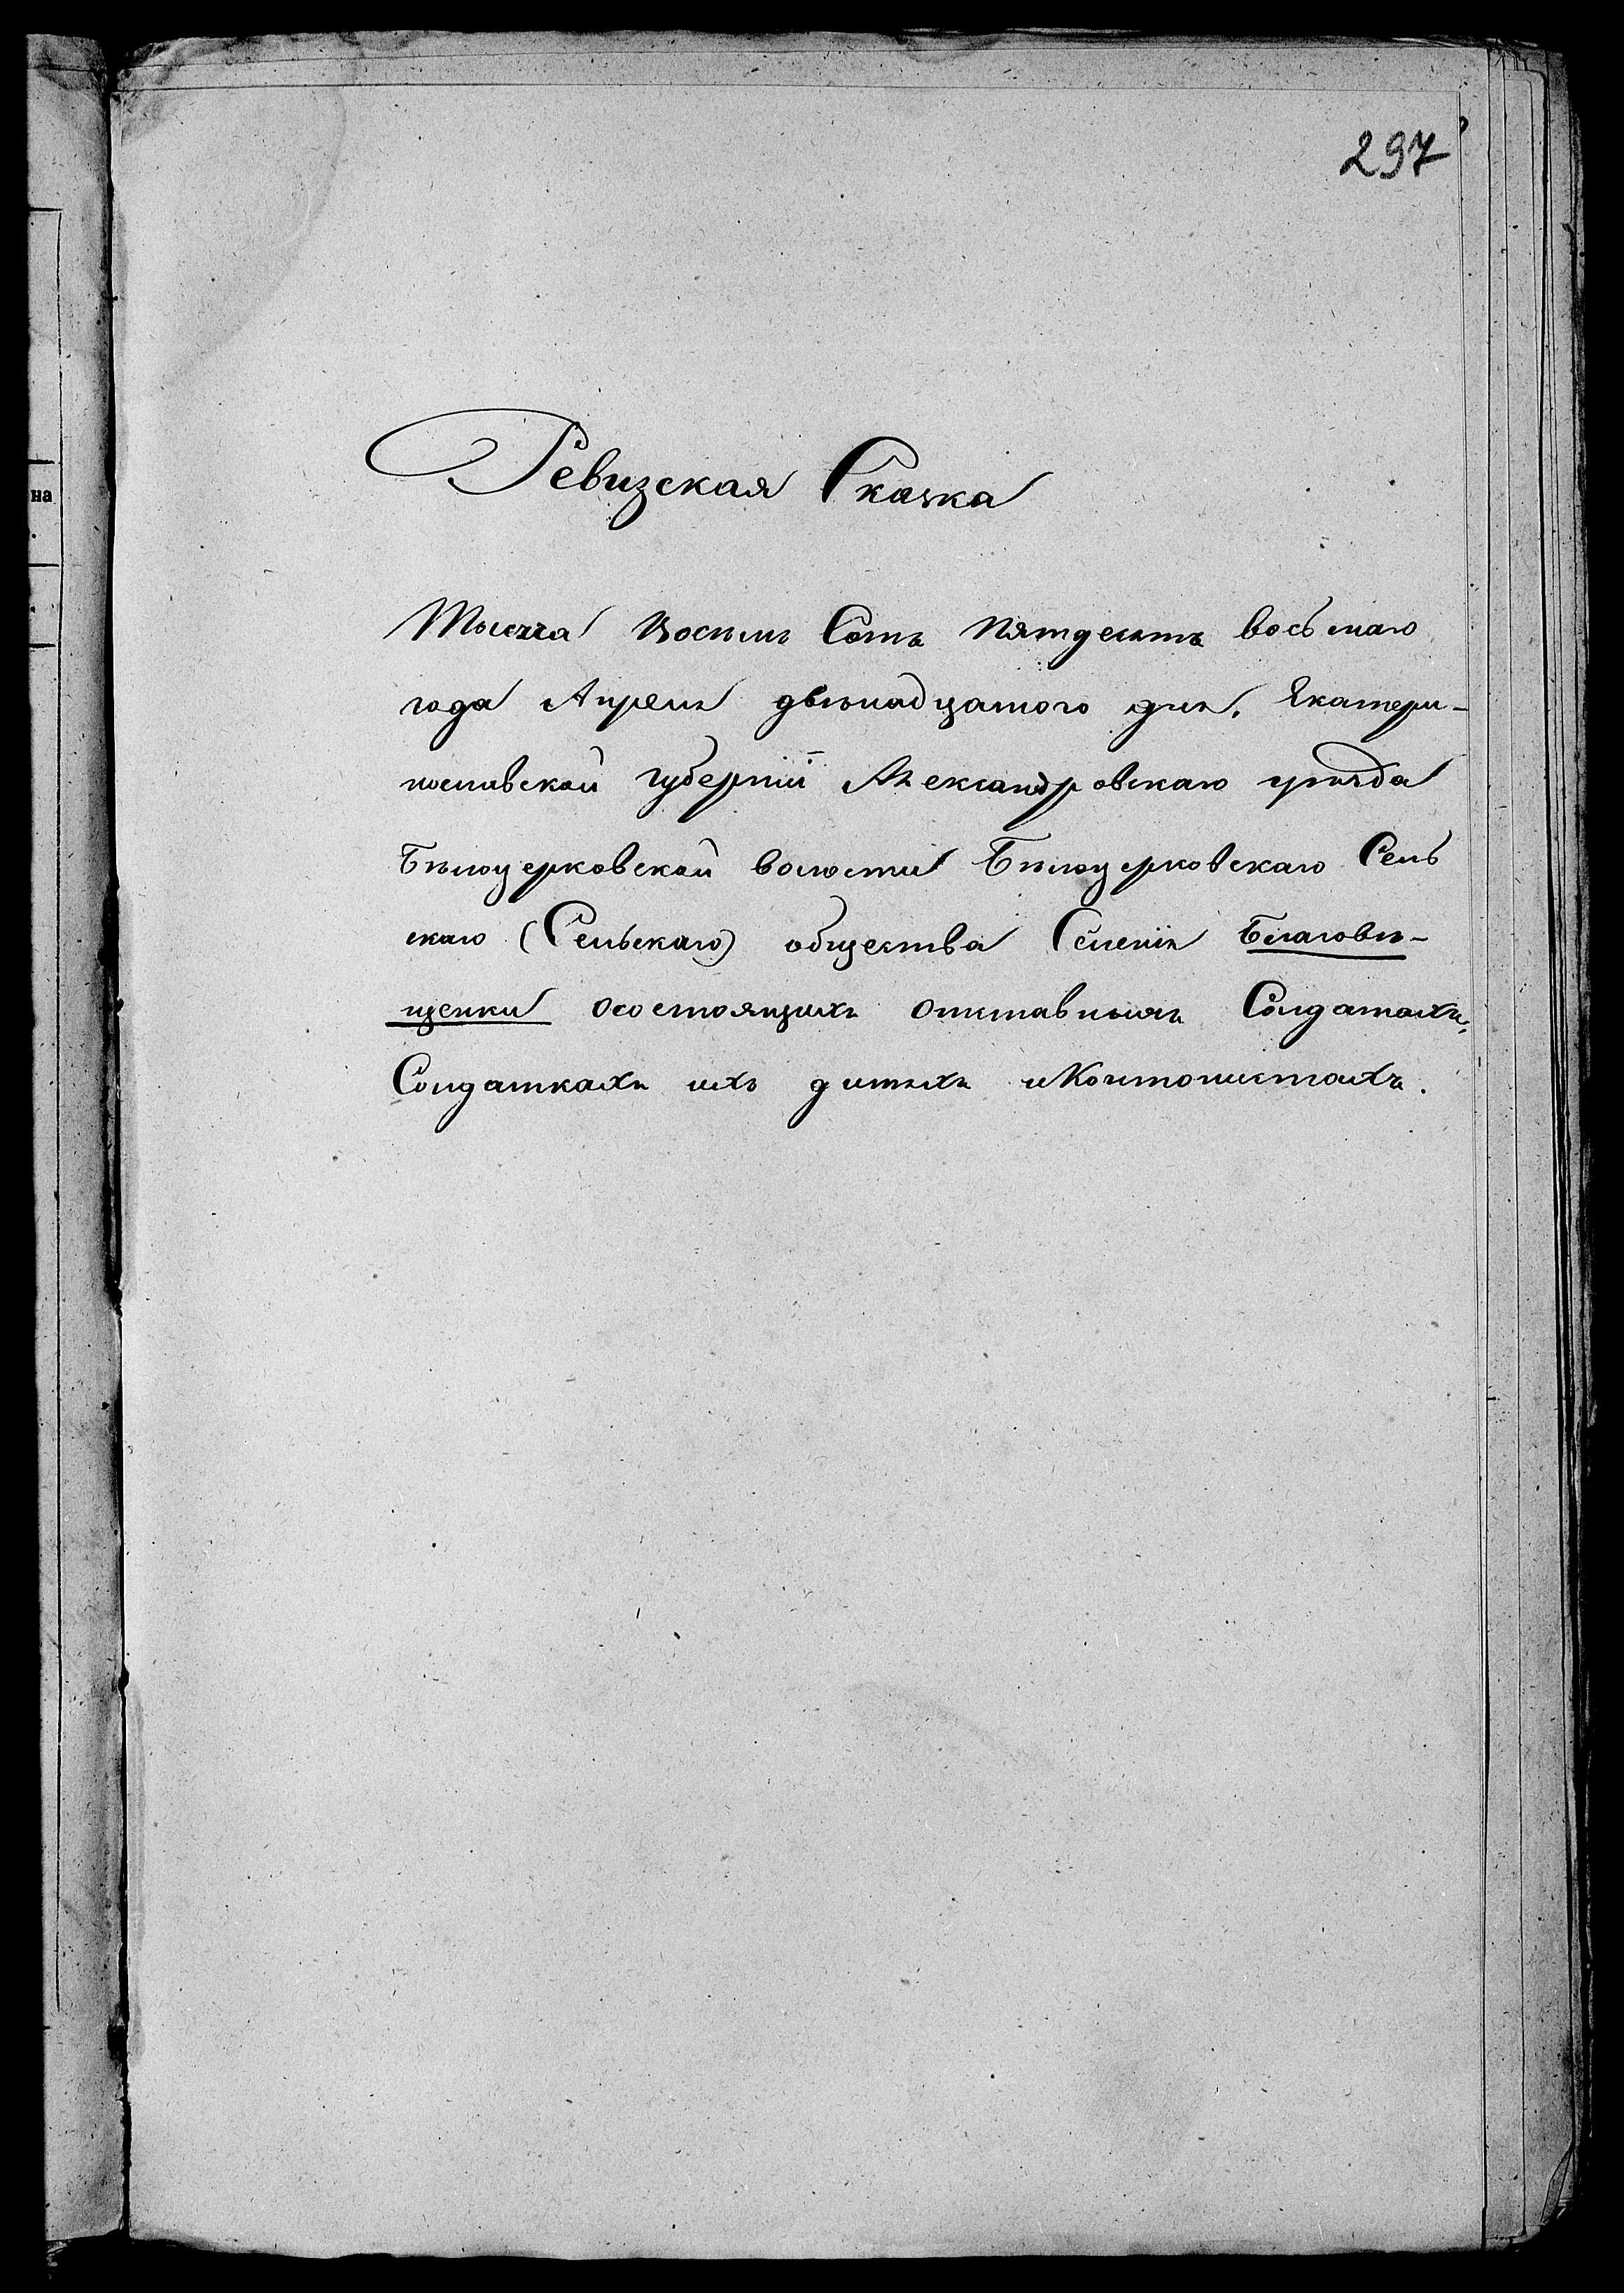 297
Ревизская Сказка
Тысеча Восемь Сотъ Пятдесятъ восьмаго
года Апреля двѣнадцатого дня, Екатери-
нославской губерніи Александровскаго уѣзда
Бѣлоцерковской волости Бѣлоцерковскаго Сель
скаго (Сельскаго) общества Селенія Благовѣ-
щенки осостоящихъ отставныхъ Солдатахъ,
Солдаткахъ ихъ дитяхъ иКонтонистахъ.
на